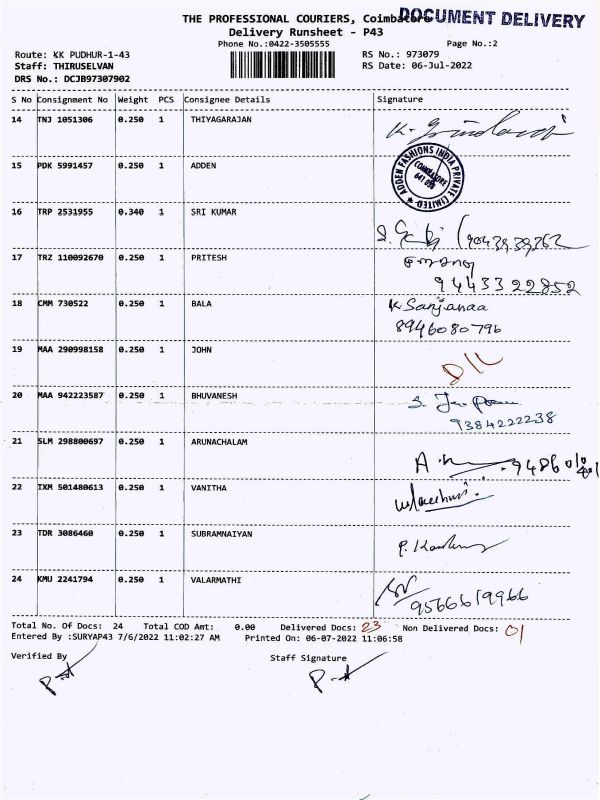 THE PROFESSIONAL COURIERS, Coimbatore
DOCUMENT DELIVERY
Delivery Runsheet - P43
Phone No.:0422-3505555 Page No.:2
Route: KK PUDHUR-1-43 RS No.: 973079
Staff: THIRUSELVAN RS Date: 06-Jul-2022
DRS No.: DCJB97307902
S No Consignment No Weight PCS Consignee Details Signature
14 TNJ 1051306 0.250 1 THIYAGARAJAN
15 PDK 5991457 0.250 1 ADDEN
ADDEN FASHIONS INDIA PRIVATE LIMITED
COIMBATORE
16 TRP 2531955 0.340 1 SRI KUMAR
9043939362
17 TRZ 110092670 0.250 1 PRITESH
9443322852
18 CMM 730522 0.250 1 BALA K Sanjanaa
8946080796
19 MAA 290998158 0.250 1 JOHN D/L
20 MAA 942223587 0.250 1 BHUVANESH
9384222238
21 SLM 298800697 0.250 1 ARUNACHALAM
22 IXM 501480613 0.250 1 VANITHA
23 TDR 3086460 0.250 1 SUBRAMNAIYAN
24 KMU 2241794 0.250 1 VALARMATHI
9566619966
Total No. Of Docs: 24 Total COD Amt: 0.00 Delivered Docs: 23 Non Delivered Docs: 01
Entered By :SURYAP43 7/6/2022 11:02:27 AM Printed On: 06-07-2022 11:06:58
Verified By Staff Signature